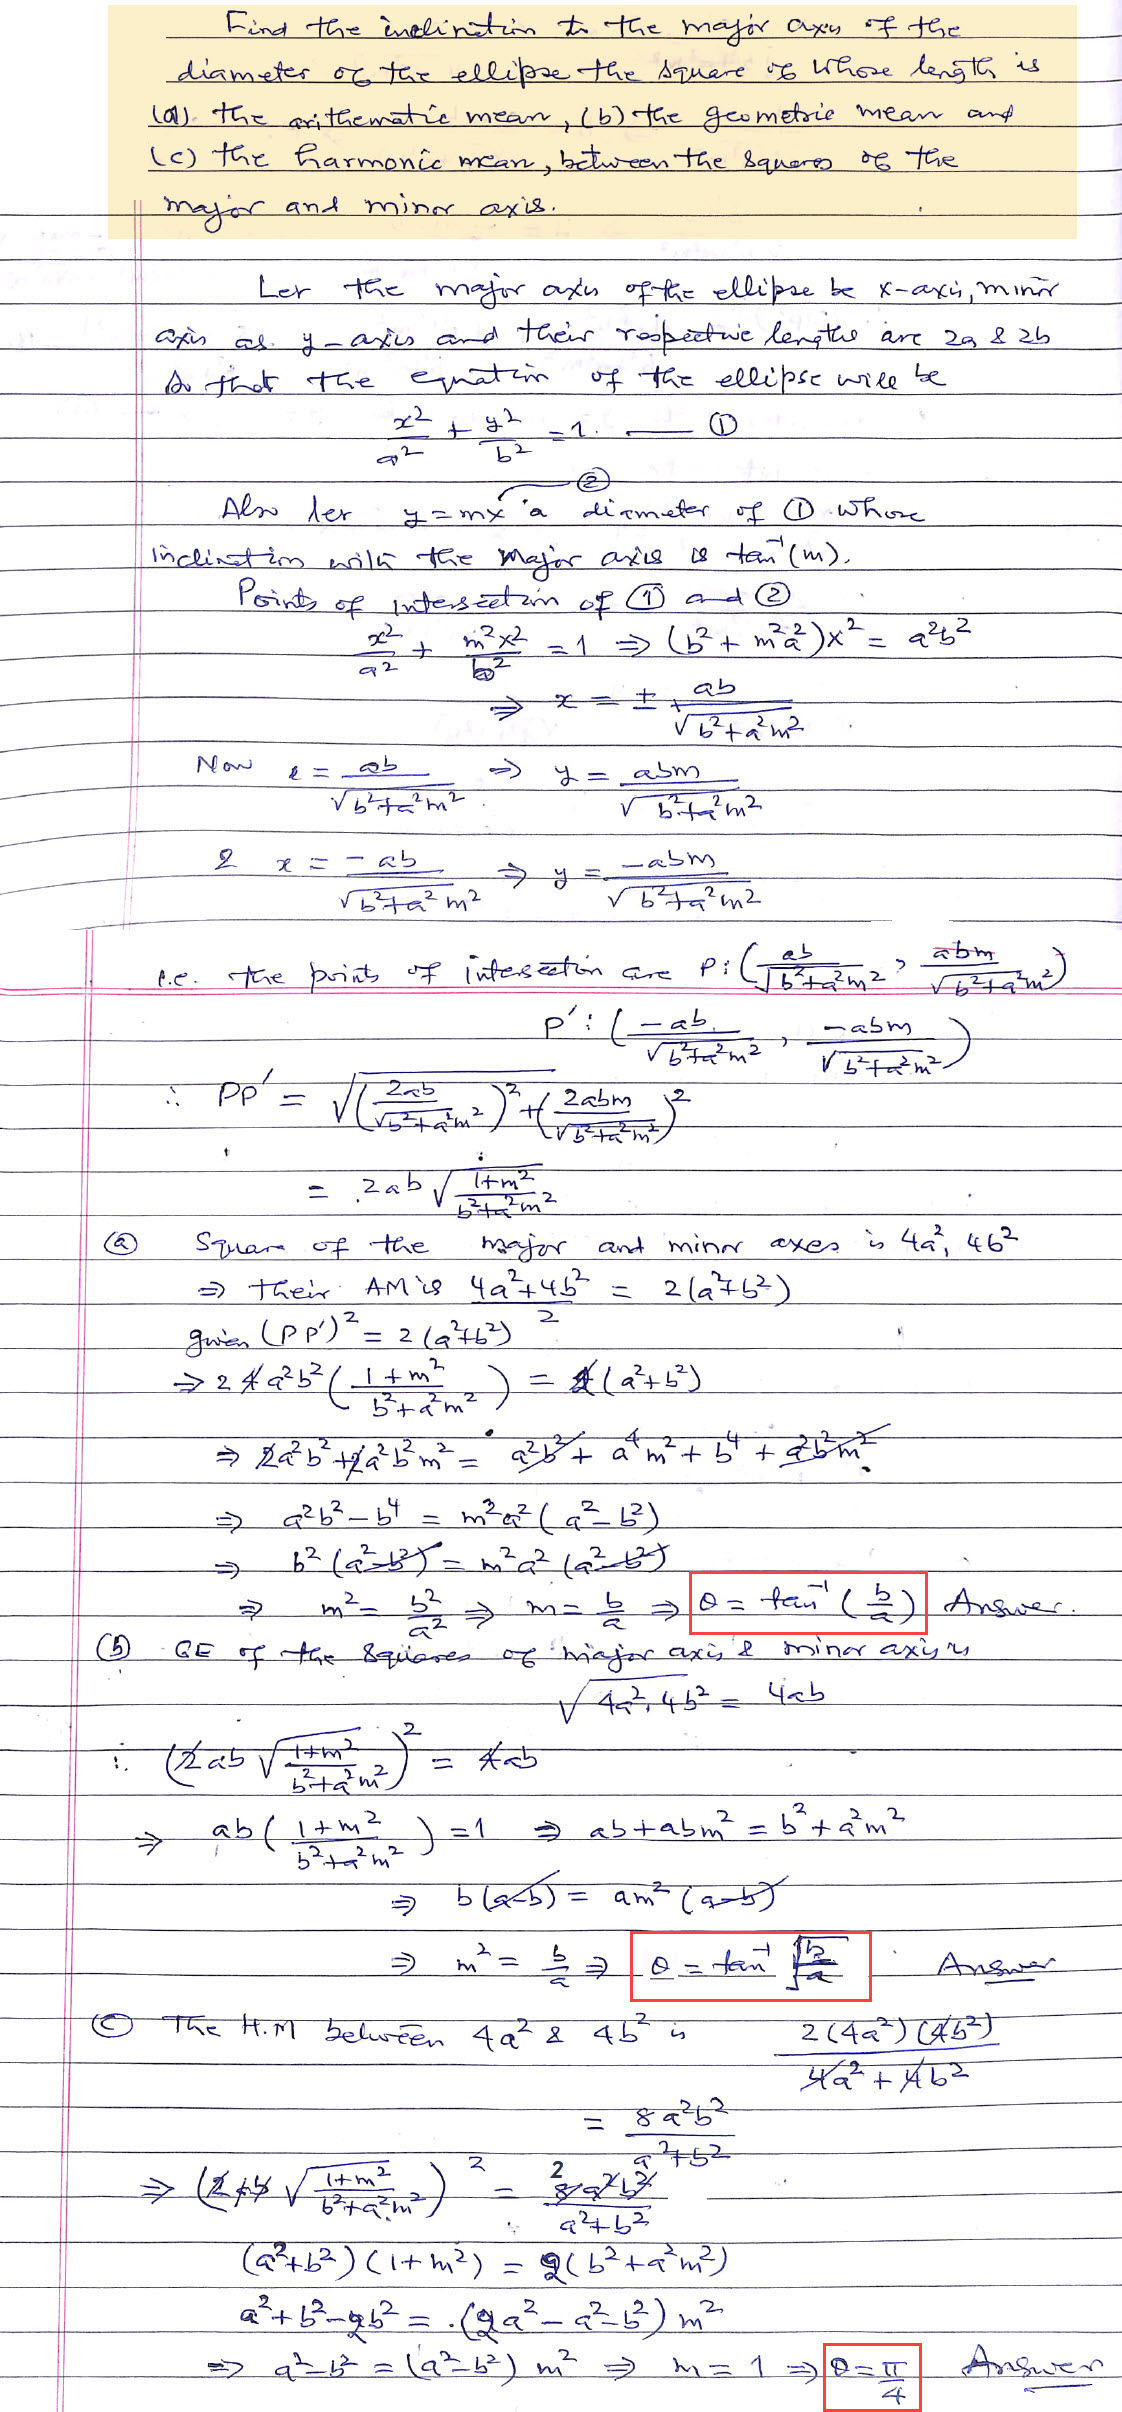 Find the inclination to the major axis of the
diameter of the ellipse the square of whose length is
(a) the arithematic mean, (b) the geometric mean and
(c) the harmonic mean, between the squares of the
major and minor axis.
Let the major axis of the ellipse be x-axis, minor
axis as y-axis and their respective lengths are 2a & 2b
so that the equation of the ellipse will be
x²/a² + y²/b² = 1. — ①
②
Also let y = mx a diameter of ① whose
inclination with the major axis is tan⁻¹(m).
Points of intersection of ① and ②
x²/a² + m²x²/b² = 1 ⇒ (b² + m²a²)x² = a²b²
⇒ x = ± ab/√(b²+a²m²)
Now x = ab/√(b²+a²m²) ⇒ y = abm/√(b²+a²m²)
& x = -ab/√(b²+a²m²) ⇒ y = -abm/√(b²+a²m²)
i.e. the points of intersection are P: (ab/√(b²+a²m²), abm/√(b²+a²m²))
P': (-ab/√(b²+a²m²), -abm/√(b²+a²m²))
∴ PP' = √((2ab/√(b²+a²m²))² + (2abm/√(b²+a²m²))²)
= 2ab √((1+m²)/(b²+a²m²))
ⓐ Square of the major and minor axes is 4a², 4b²
⇒ their AM is (4a²+4b²)/2 = 2(a²+b²)
given (PP')² = 2(a²+b²)
⇒ 2 4a²b² ((1+m²)/(b²+a²m²)) = 2(a²+b²)
⇒ 2a²b² + 2a²b²m² = a²b² + a⁴m² + b⁴ + a²b²m²
⇒ a²b² - b⁴ = m²a²(a² - b²)
⇒ b²(a²-b²) = m²a²(a²-b²)
⇒ m² = b²/a² ⇒ m = b/a ⇒ θ = tan⁻¹(b/a) Answer.
(b) GE of the squares of major axis & minor axis is
√(4a².4b²) = 4ab
∴ (2ab √((1+m²)/(b²+a²m²)))² = 4ab
⇒ ab((1+m²)/(b²+a²m²)) = 1 ⇒ ab+abm² = b²+a²m²
⇒ b(a-b) = am²(a-b)
⇒ m² = b/a ⇒ θ = tan⁻¹ √(b/a) Answer
ⓒ The H.M between 4a² & 4b² is 2(4a²)(4b²)/(4a²+4b²)
= 8a²b²/(a²+b²)
⇒ (2ab √((1+m²)/(b²+a²m²)))² = 2 8a²b²/(a²+b²)
(a²+b²)(1+m²) = 2(b²+a²m²)
a²+b²-2b² = (2a²-a²-b²)m²
⇒ a²-b² = (a²-b²) m² ⇒ m = 1 ⇒ θ = π/4 Answer